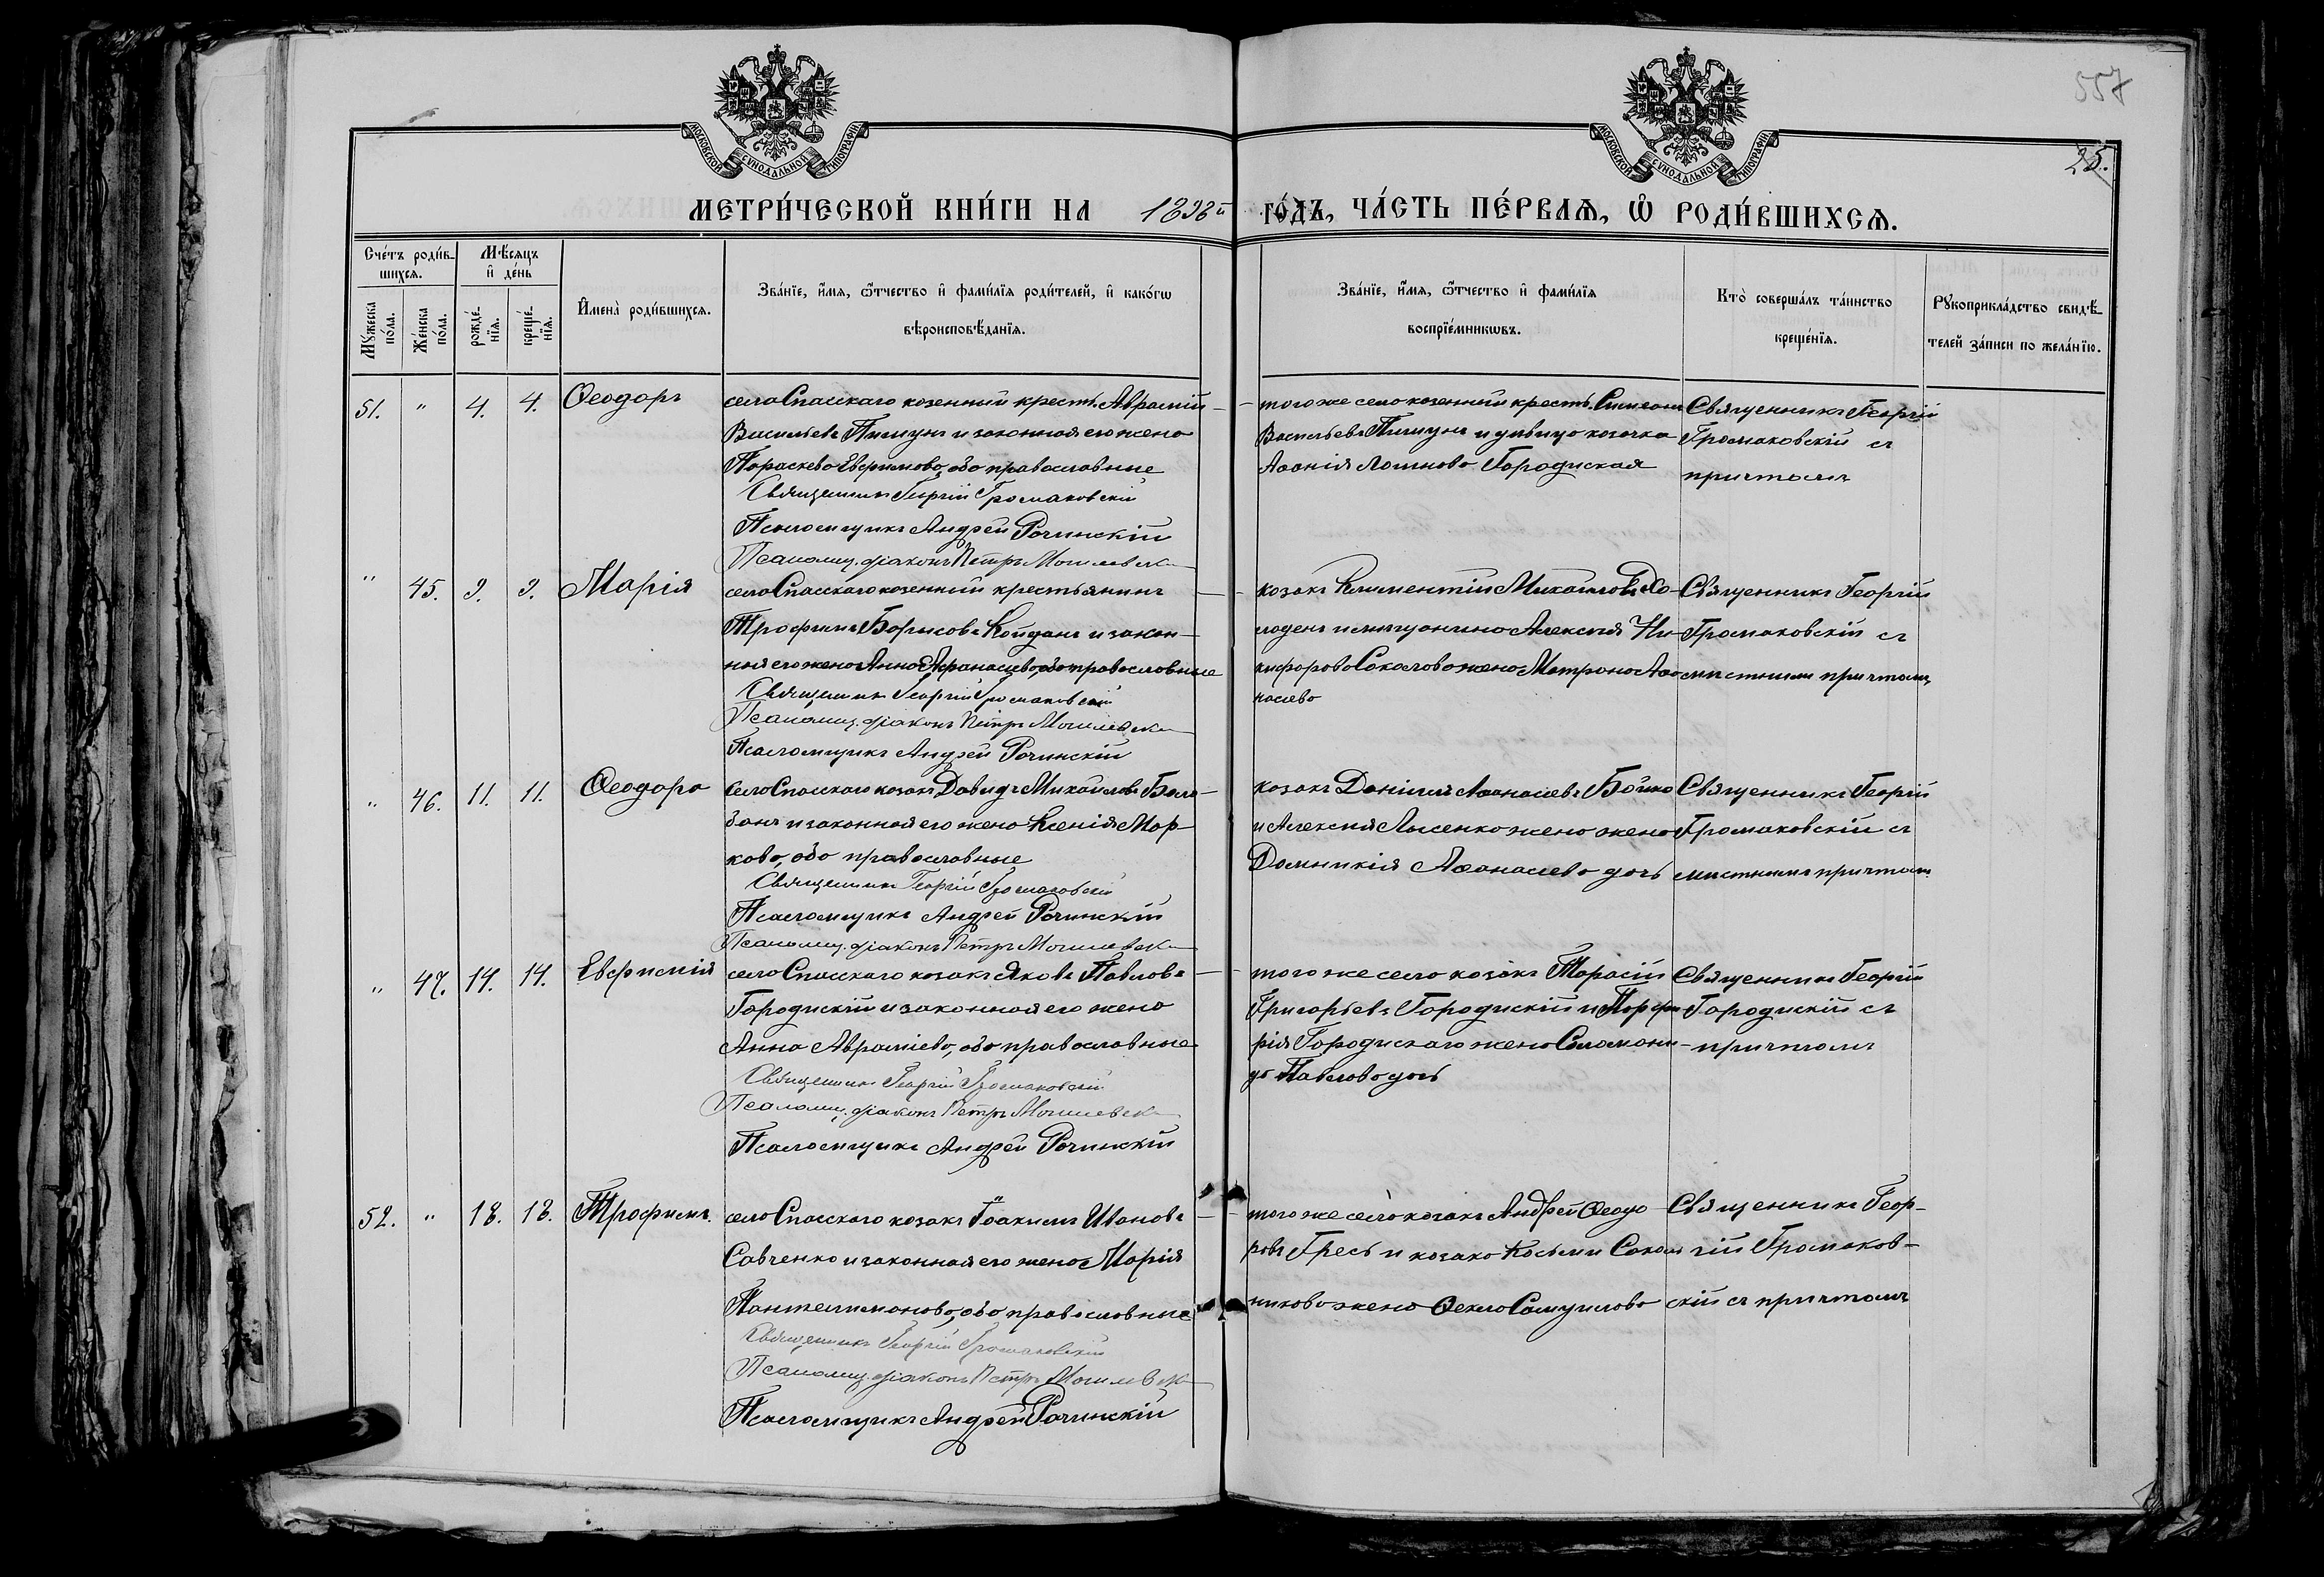 557
25.
МОСКОВСКОЙ СѴНОДАЛЬНОЙ ТИПОГРАФІИ
МОСКОВСКОЙ СѴНОДАЛЬНОЙ ТИПОГРАФІИ
МЕТРИ́ЧЕСКОЙ КНИ́ГИ НА 1898й ГО́ДЪ, ЧА́СТЬ ПЕ́РВАѦ, Ѡ҆ РОДИ́ВШИХСѦ.
Сче́тъ роди́в-
шихсѧ.
Мѣ́сѧцъ
и҆ де́нь
Мꙋ́жеска
по́ла.
Же́нска
по́ла.
рожде́-
нїѧ.
креще́-
нїѧ.
И҆мена̀ роди́вшихсѧ.
Зва́нїе, и҆́мѧ, ѻ҆́тчество и҆ фами́лїѧ роди́телей, и҆ како́гѡ
вѣроисповѣ́данїѧ.
Зва́нїе, и҆́мѧ, ѻ҆́тчество и҆ фами́лїѧ
воспрїе́мникѡвъ.
Кто̀ соверша́лъ та́инство
креще́нїѧ.
Рꙋкоприкла́дство свидѣ́-
телей за́писи по жела́нїю.
51. " 4. 4. Ѳеодоръ
села Спасскаго козенный крестъ. Аврамій
Васильевъ Пишунъ и законная его жена
Параскева Евфимова, оба православные
Священникъ Георгій Громаковскій
Псаломщикъ Андрей Рочинскій
Псаломщ. діаконъ Петръ Могилевск
того же села козенный крестъ. Симеонъ
Васильевъ Пишунъ и дѣвица козачка
Городиская
Священникъ Георгій
Громаковскій съ
причтомъ
" 45. 9. 9. Марія
села Спасскаго козенный крестьянинъ
Трофимъ Борисовъ Койданъ и закон-
ная его жена Анна Афанасиева, оба православные
Священникъ Георгій Громаковскій
Псаломщ. діаконъ Петръ Могилевск
Псаломщикъ Андрей Рочинскій
козакъ Климентій Михаиловъ Хо-
лоденъ и мѣщанина Алексія Ни-
кифорова Соколова жена Матрона Аѳа
насиева
Священникъ Георгій
Громаковскій съ
мѣстнымъ причтомъ
" 46. 11. 11. Ѳеодора
села Спасскаго козакъ Давидъ Михаиловъ Бала-
банъ и законная его жена Ксенія Мар-
кова, оба православные
Священникъ Георгій Громаковскій
Псаломщикъ Андрей Рочинскій
Псаломщ. діаконъ Петръ Могилевск
козакъ Даніилъ Аѳанасиевъ Бойко
и Алексія Лысенко жена жена
Домникія Аѳанасиева дочь
Священникъ Георгій
Громаковскій съ
мѣстнымъ причтомъ
" 47. 14. 14. Евфимія
села Спасскаго козакъ Яковъ Павловъ
Городискій и законная его жена
Анна Авраміева, оба православные
Священникъ Георгій Громаковскій
Псаломщ. діаконъ Петръ Могилевск
Псаломщикъ Андрей Рочинскій
того же села козакъ Тарасій
Григорьевъ Городискій и Порфи-
рія Городискаго жена Соломони-
да Павлова дочь
Священникъ Георгій
Городискій съ
причтомъ
52. " 18. 18. Трофимъ.
села Спасскаго козакъ Іоакимъ Ивановъ
Савченко и законная его жена Марія
Пантелимонова, оба православные
Священникъ Георгій Громаковскій
Псаломщ. діаконъ Петръ Могилевск
Псаломщикъ Андрей Рочинскій
того же села козакъ Андрей Ѳеодо
ровъ Гресь и козака Косьми Сокол
никова жена Ѳекла Самуилова
Священникъ Геор-
гій Громаков-
скій съ причтомъ